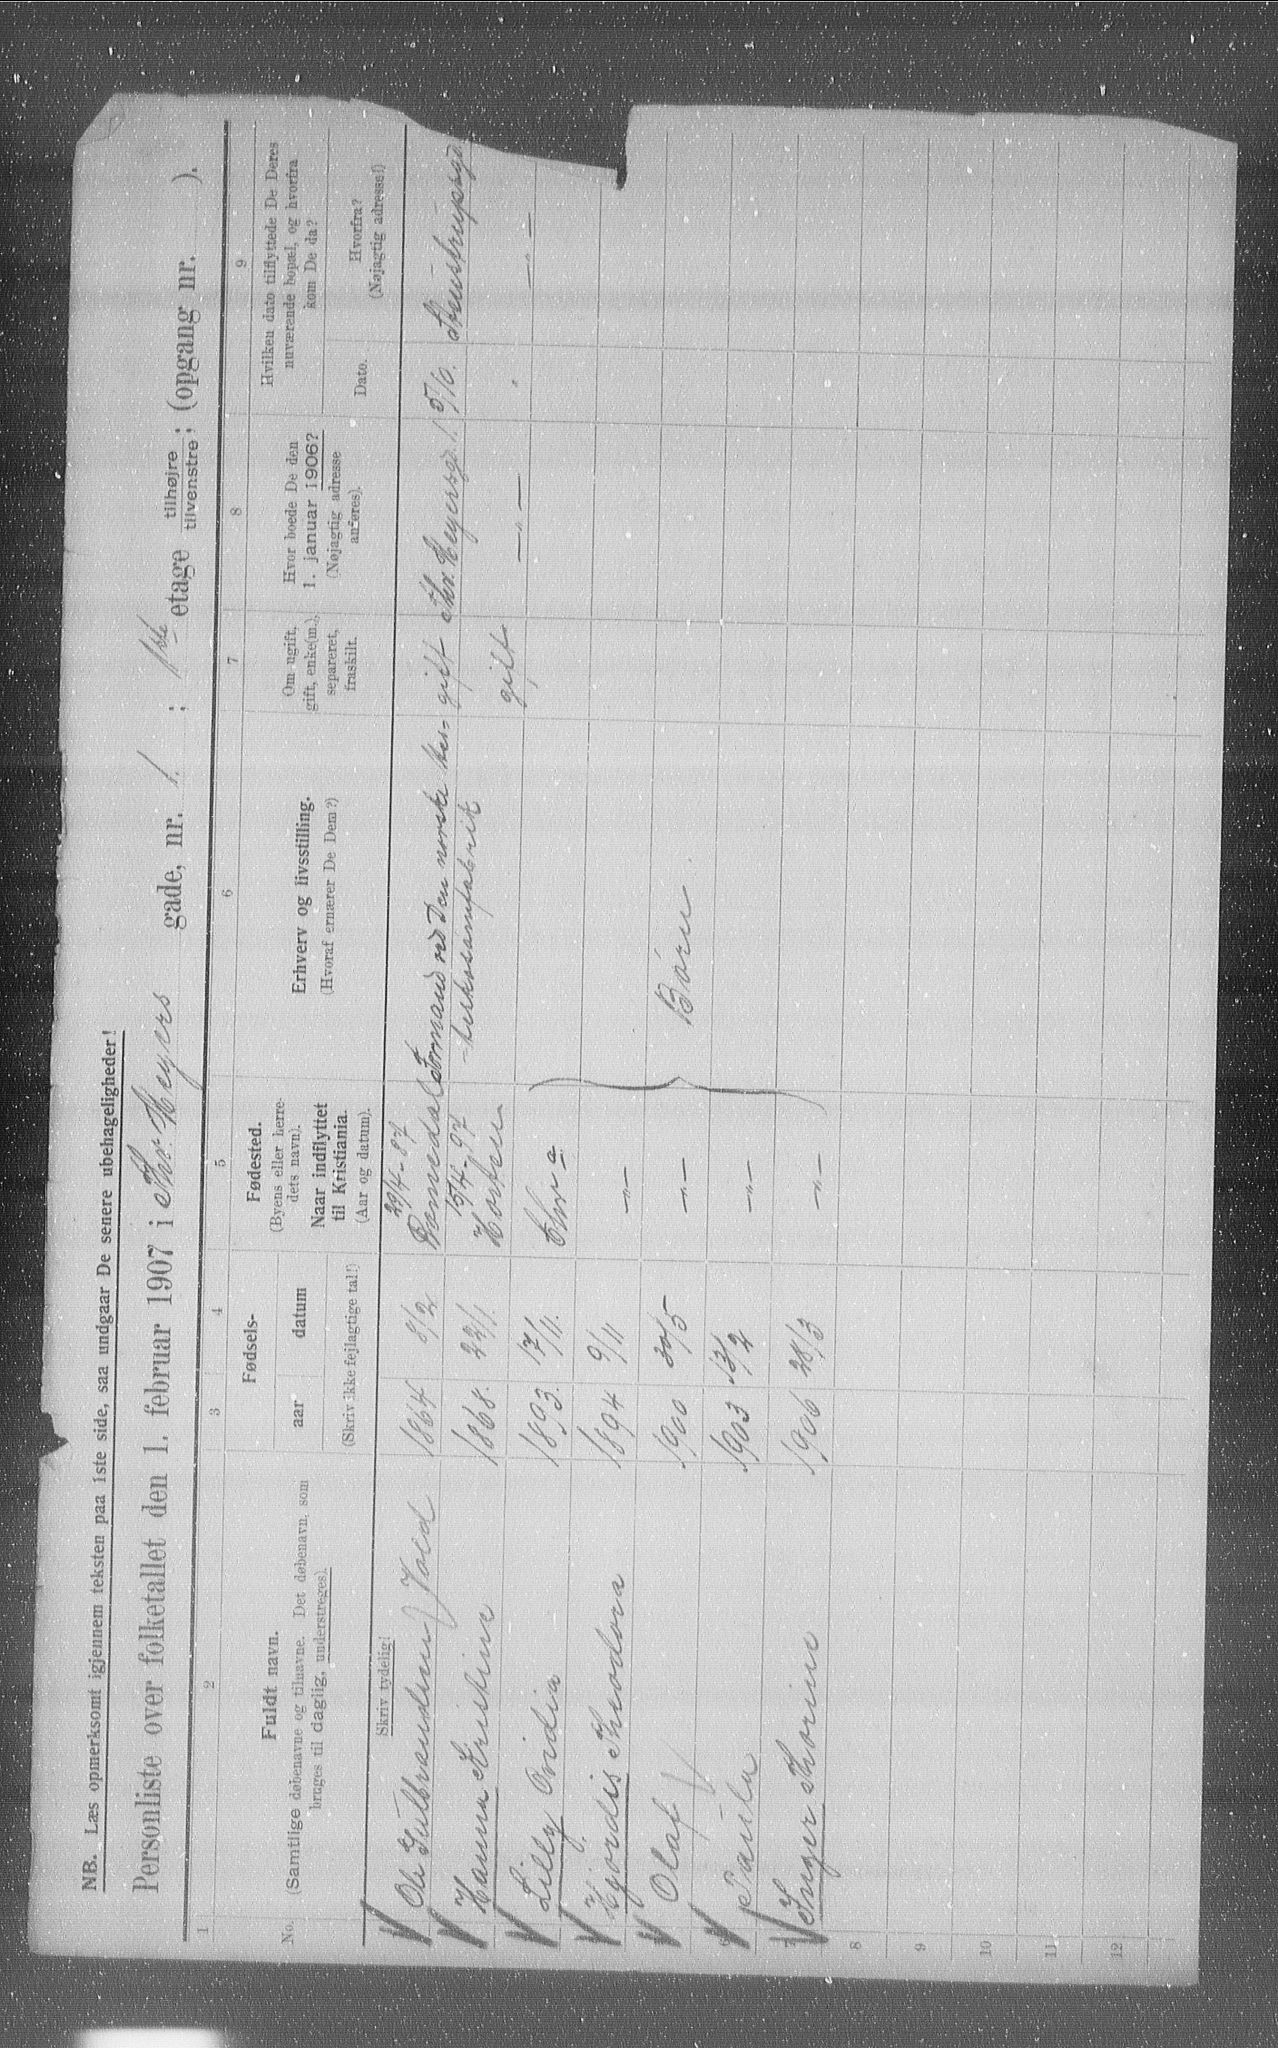 NB. Læs opmerksomt igjennem teksten paa 1ste side, saa undgaar De senere ubehageligheder!
Personliste over folketallet den 1. februar 1907 i Thv. Meyers gade, nr. 1. ; 1ste etage tilhøjre tilvenstre; (opgang nr. ).
1 2 3 4 5 6 7 8 9
No.
Fuldt navn.
(Samtlige døbenavne og tilnavne. Det døbenavn, som
bruges til daglig, understreges).
Fødsels-
aar datum
(Skriv ikke fejlagtige tal!)
Fødested.
(Byens eller herre-
dets navn).
Naar indflyttet
til Kristiania.
(Aar og datum).
Erhverv og livsstilling.
(Hvoraf ernærer De Dem?)
Om ugift,
gift, enke(m.),
separeret,
fraskilt.
Hvor boede De den
1. januar 1906?
(Nøjagtig adresse
anføres).
Hvilken dato tilflyttede De Deres
nuværende bopæl, og hvorfra
kom De da?
Dato.
Hvorfra?
(Nøjagtig adresse!)
Skriv tydelig!
29/4-87
Ole Gulbrandsen Vold 1864 8/2 Formand ved Den norske hes- gift Thv. Meyersgd. 1. 5/6. Steenstrupsgd
15/4-97
Hanna Kristine 1868. 22/1. Horten -teskosømfabrik gift -"- -"-
Lilly Ovidia 1893. 17/11. Chr a
Hjördis Theodora 1894 9/11 -"-
Olaf 1900 30/5 -"- Börn
6 Paula 1903 13/2 -"-
7 Inger Thorine 1906 28/3 -"-
8
9
10
11
12